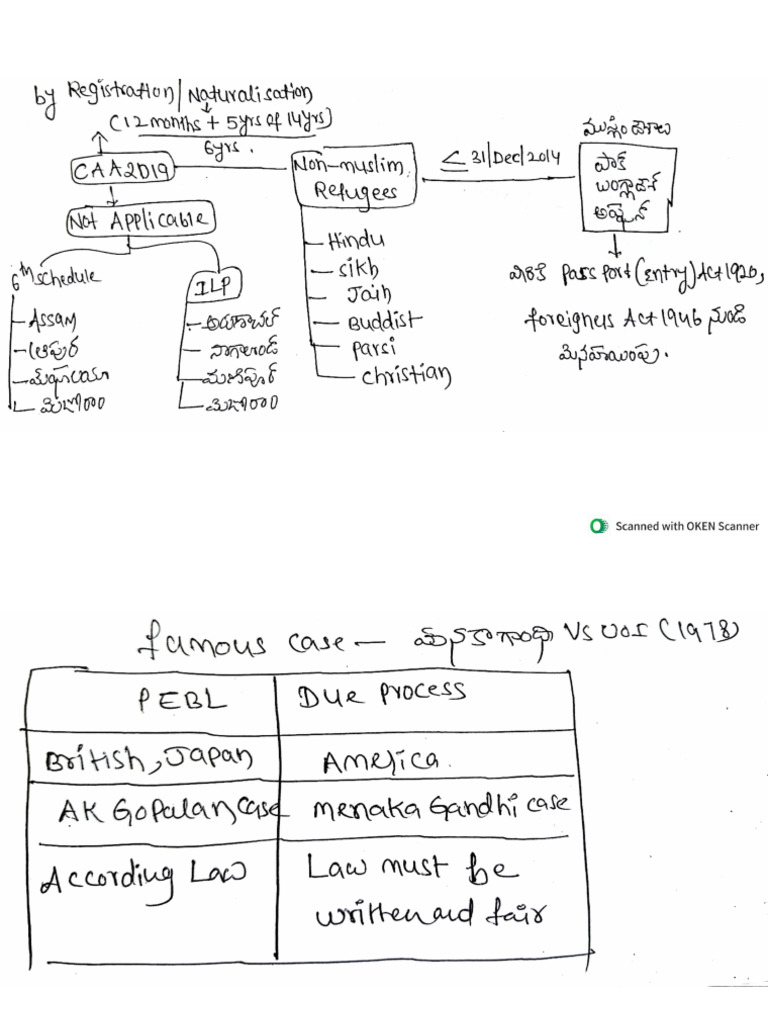 by Registration/Naturalisation
(12months + 5yrs of 14yrs)
6yrs.
CAA2019
Non-muslim Refugees
≤ 31/Dec/2014
ముస్లిం దేశాలు
పాక్
బంగ్లాదేశ్
అఫ్ఘన్
Not Applicable
6th schedule
Assam
త్రిపుర
మేఘాలయా
మిజోరాం
ILP
అరుణాచల్
నాగాలాండ్
మణిపూర్
మిజోరాం
Hindu
Sikh
Jain
Buddist
Parsi
Christian
వీరికి Passport (entry) Act 1920,
foreigners Act 1946 నుండి
మినహాయింపు.
Scanned with OKEN Scanner
famous case – మేనకాగాంధీ Vs UOI (1978)
PEBL Due Process
British, Japan America.
AK Gopalan case menaka Gandhi case
According Law Law must be
written and fair